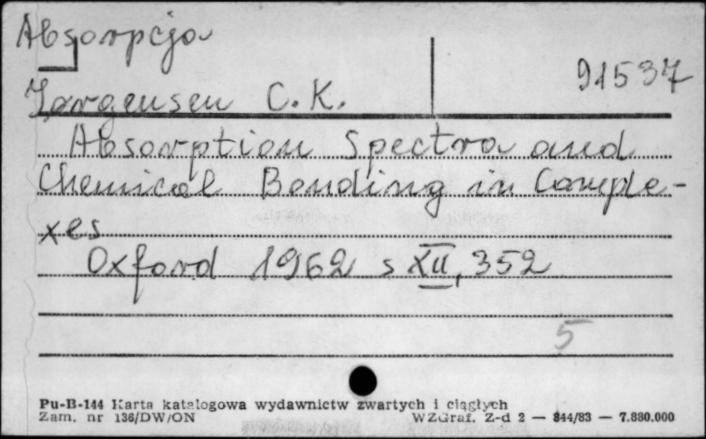 Absorpcja
91537
Jorgensen C.K.
Absorption Spectra and
Chemical Bonding in Comple-
xes
Oxford 1962 s XII, 352
5
Pu-B-144 Karta katalogowa wydawnictw zwartych i ciągłych
Zam. nr 136/DW/ON WZGraf. Z-d 2 — 844/83 — 7.880.000